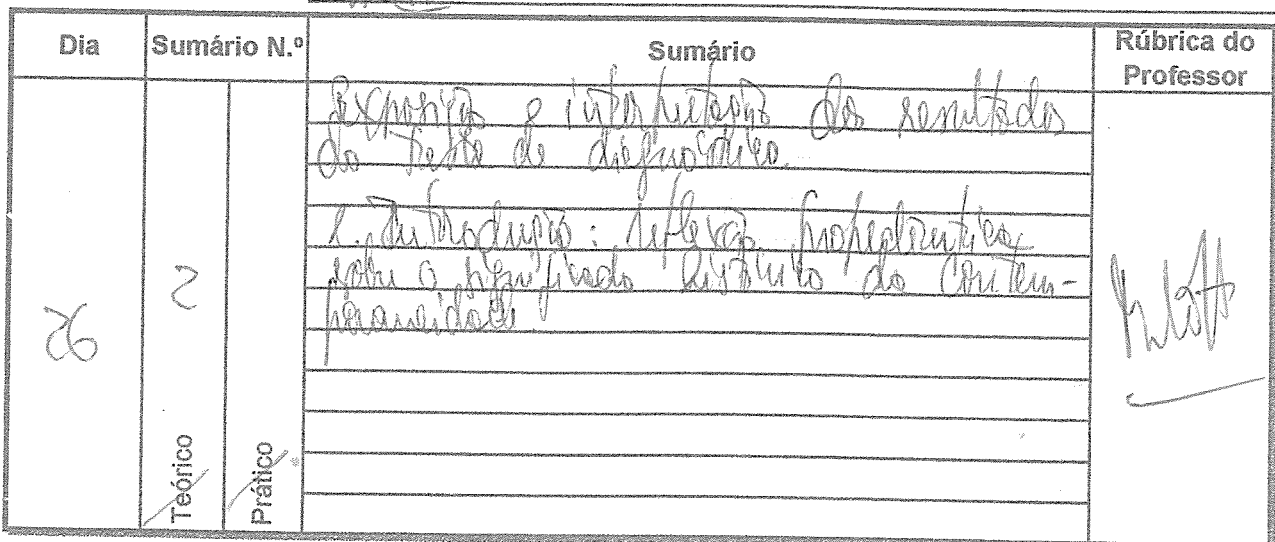 Dia Sumário N.º Sumário Rúbrica do Professor
26 2
Exposição e interpretação dos resultados
do teste de diagnóstico.
1. Introdução: reflexão propedêutica
sobre o significado histórico da contem-
poraneidade.
Teórico
Prático